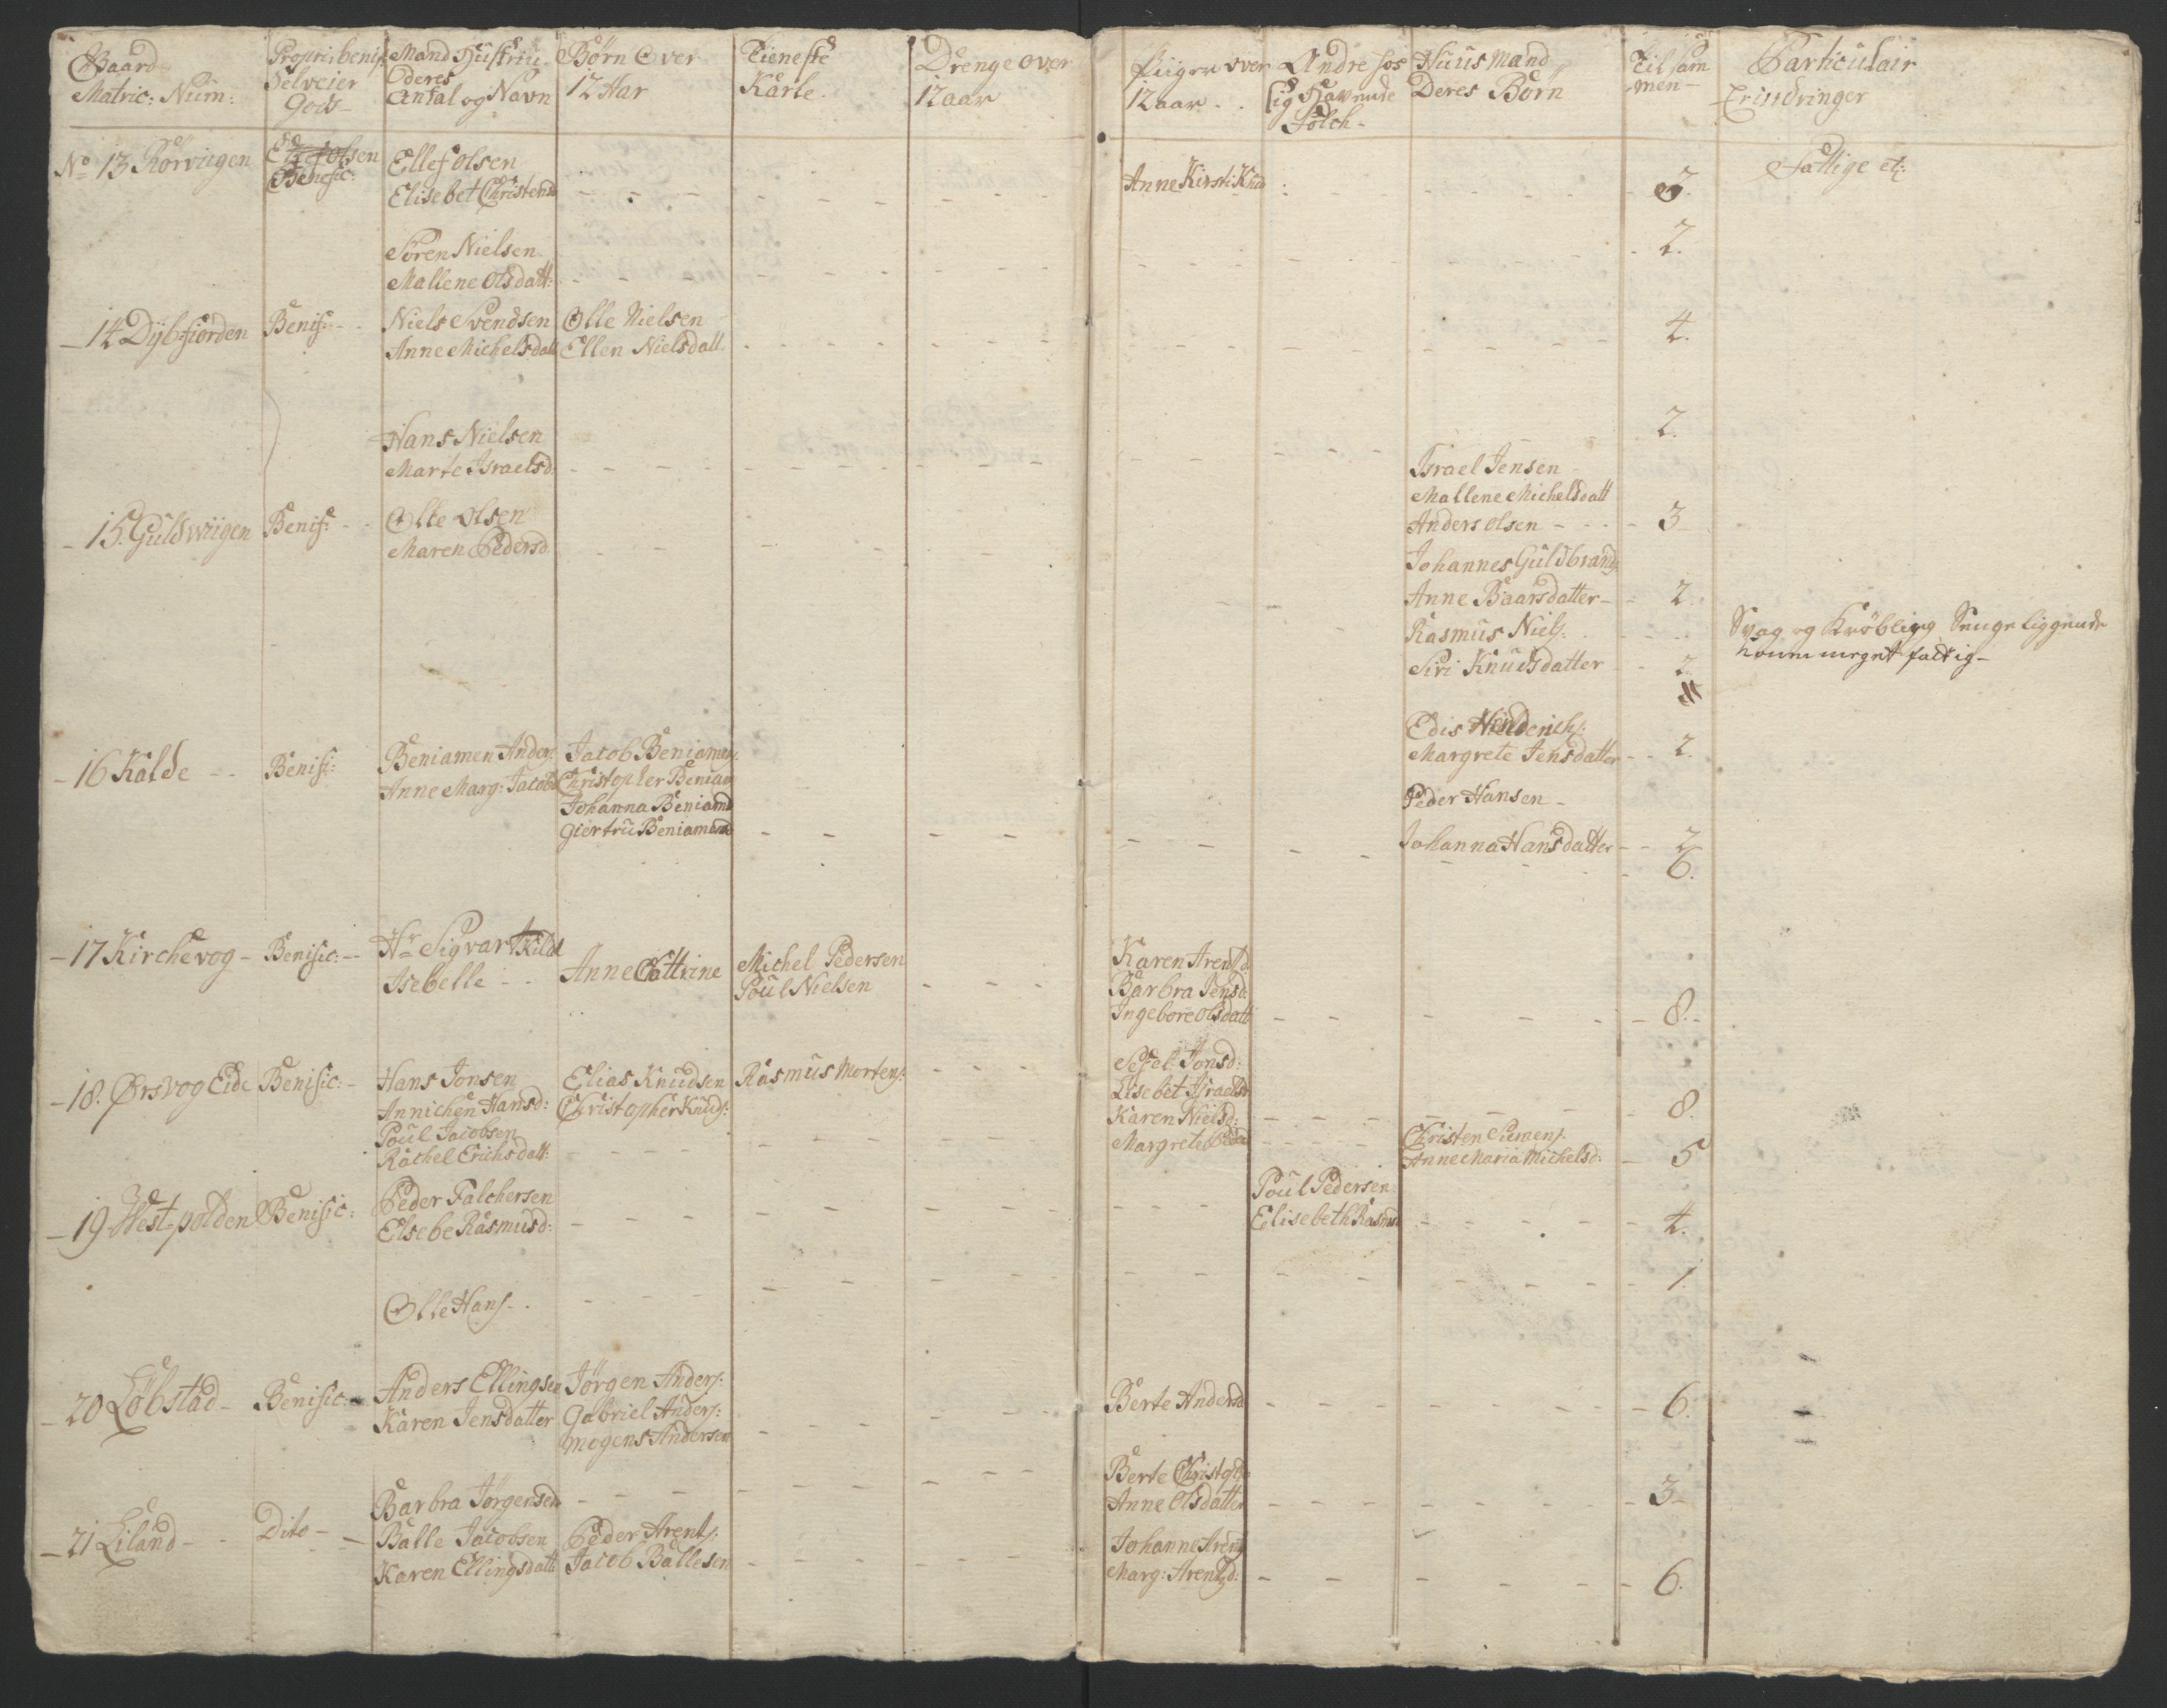 Gaard
Matric: Num:
Propri: benif:
Selveier
Gods
Mand Hustrue
Deres
Antal og Navn
Børn Over
12 Aar
Tieneste
Karle.
Drenge over
12 aar
Piiger over
12 aar
Andre hos
sig Havende
Folch
Huusmand
Deres Børn
Til sam
men
Particulair
Erindringer
No 13 Rørviigen
Ellef olsen
Benefic:
Ellef olsen
Elisebet Christensd
Anne Kirsti Knd
3.
Fattige etc:
Søren Nielsen
Mallene Olsdatt:
2.
14 Dybfiorden
Benif:
Niels Svendsen
Anne Michelsdatt
Olle Nielsen
Ellen Nielsdatt
4.
Hans Nielsen
Marte Israelsd.
2.
15. Guldwiigen
Benif:
Olle olsen
Maren Pedersd.
Israel Jensen
Mallene Michelsdatt
Anders olsen
3
Johannes Guldbrands:
Anne Baarsdatter
2
Rasmus Niels:
Siri Knudsdatter
2
Svag og Krøbling Senge liggende
meget fattig
Edis Hinderichs:
Margrete Jensdatter
2.
Peder Hansen
Johanna Hansdatter
2
16 Kalde
Benifi:
Beniamen Anders:
Anne Marg: Jacobs
Jacob Beniamens:
Christopher Beniam
Johanna Beniamd
Giertru Beniamend
6.
17 Kirchevog
Benific:
Hr Sigvart Kildal
Isebelle
Anne Cattrine
Michel Pedersen
Poul Nielsen
Karen Arentsd
Barbra Jensd:
Ingebore olsdatt
8.
18. Ørsvog Eide
Benific:
Hans Jonsen
Annichen Hansd:
Elias Knudsen
Christopher Knuds:
Rasmus Mortens:
Sessel Jonsd:
Lisebet Israelsd
Karen Nielsd:
8.
Poul Jacobsen
Rachel Erichsdatt:
Margrete Peder
Christen Siemens:
Anne Maria Michelsd:
5
19 West-polden
Benific:
Peder Falchersen
Elsebe Rasmusd:
Poul Pedersen
Elisebeth Rasmd
4.
Olle Hans:
1.
20 Løbstad
Benific:
Anders Ellingsen
Karen Jensdatter
Jørgen Anders:
Gabriel Anders:
Mogens Andersen
Berte Andersd
6.
Barbra Jørgensd
Berte Christophs
Anne Olsdatter
3
21 Liland
Dito
Balle Jacobsen
Karen Ellingsdatt
Peder Arents:
Jacob Ballesen
Johanne Arents
Marg: Arentsd:
6.